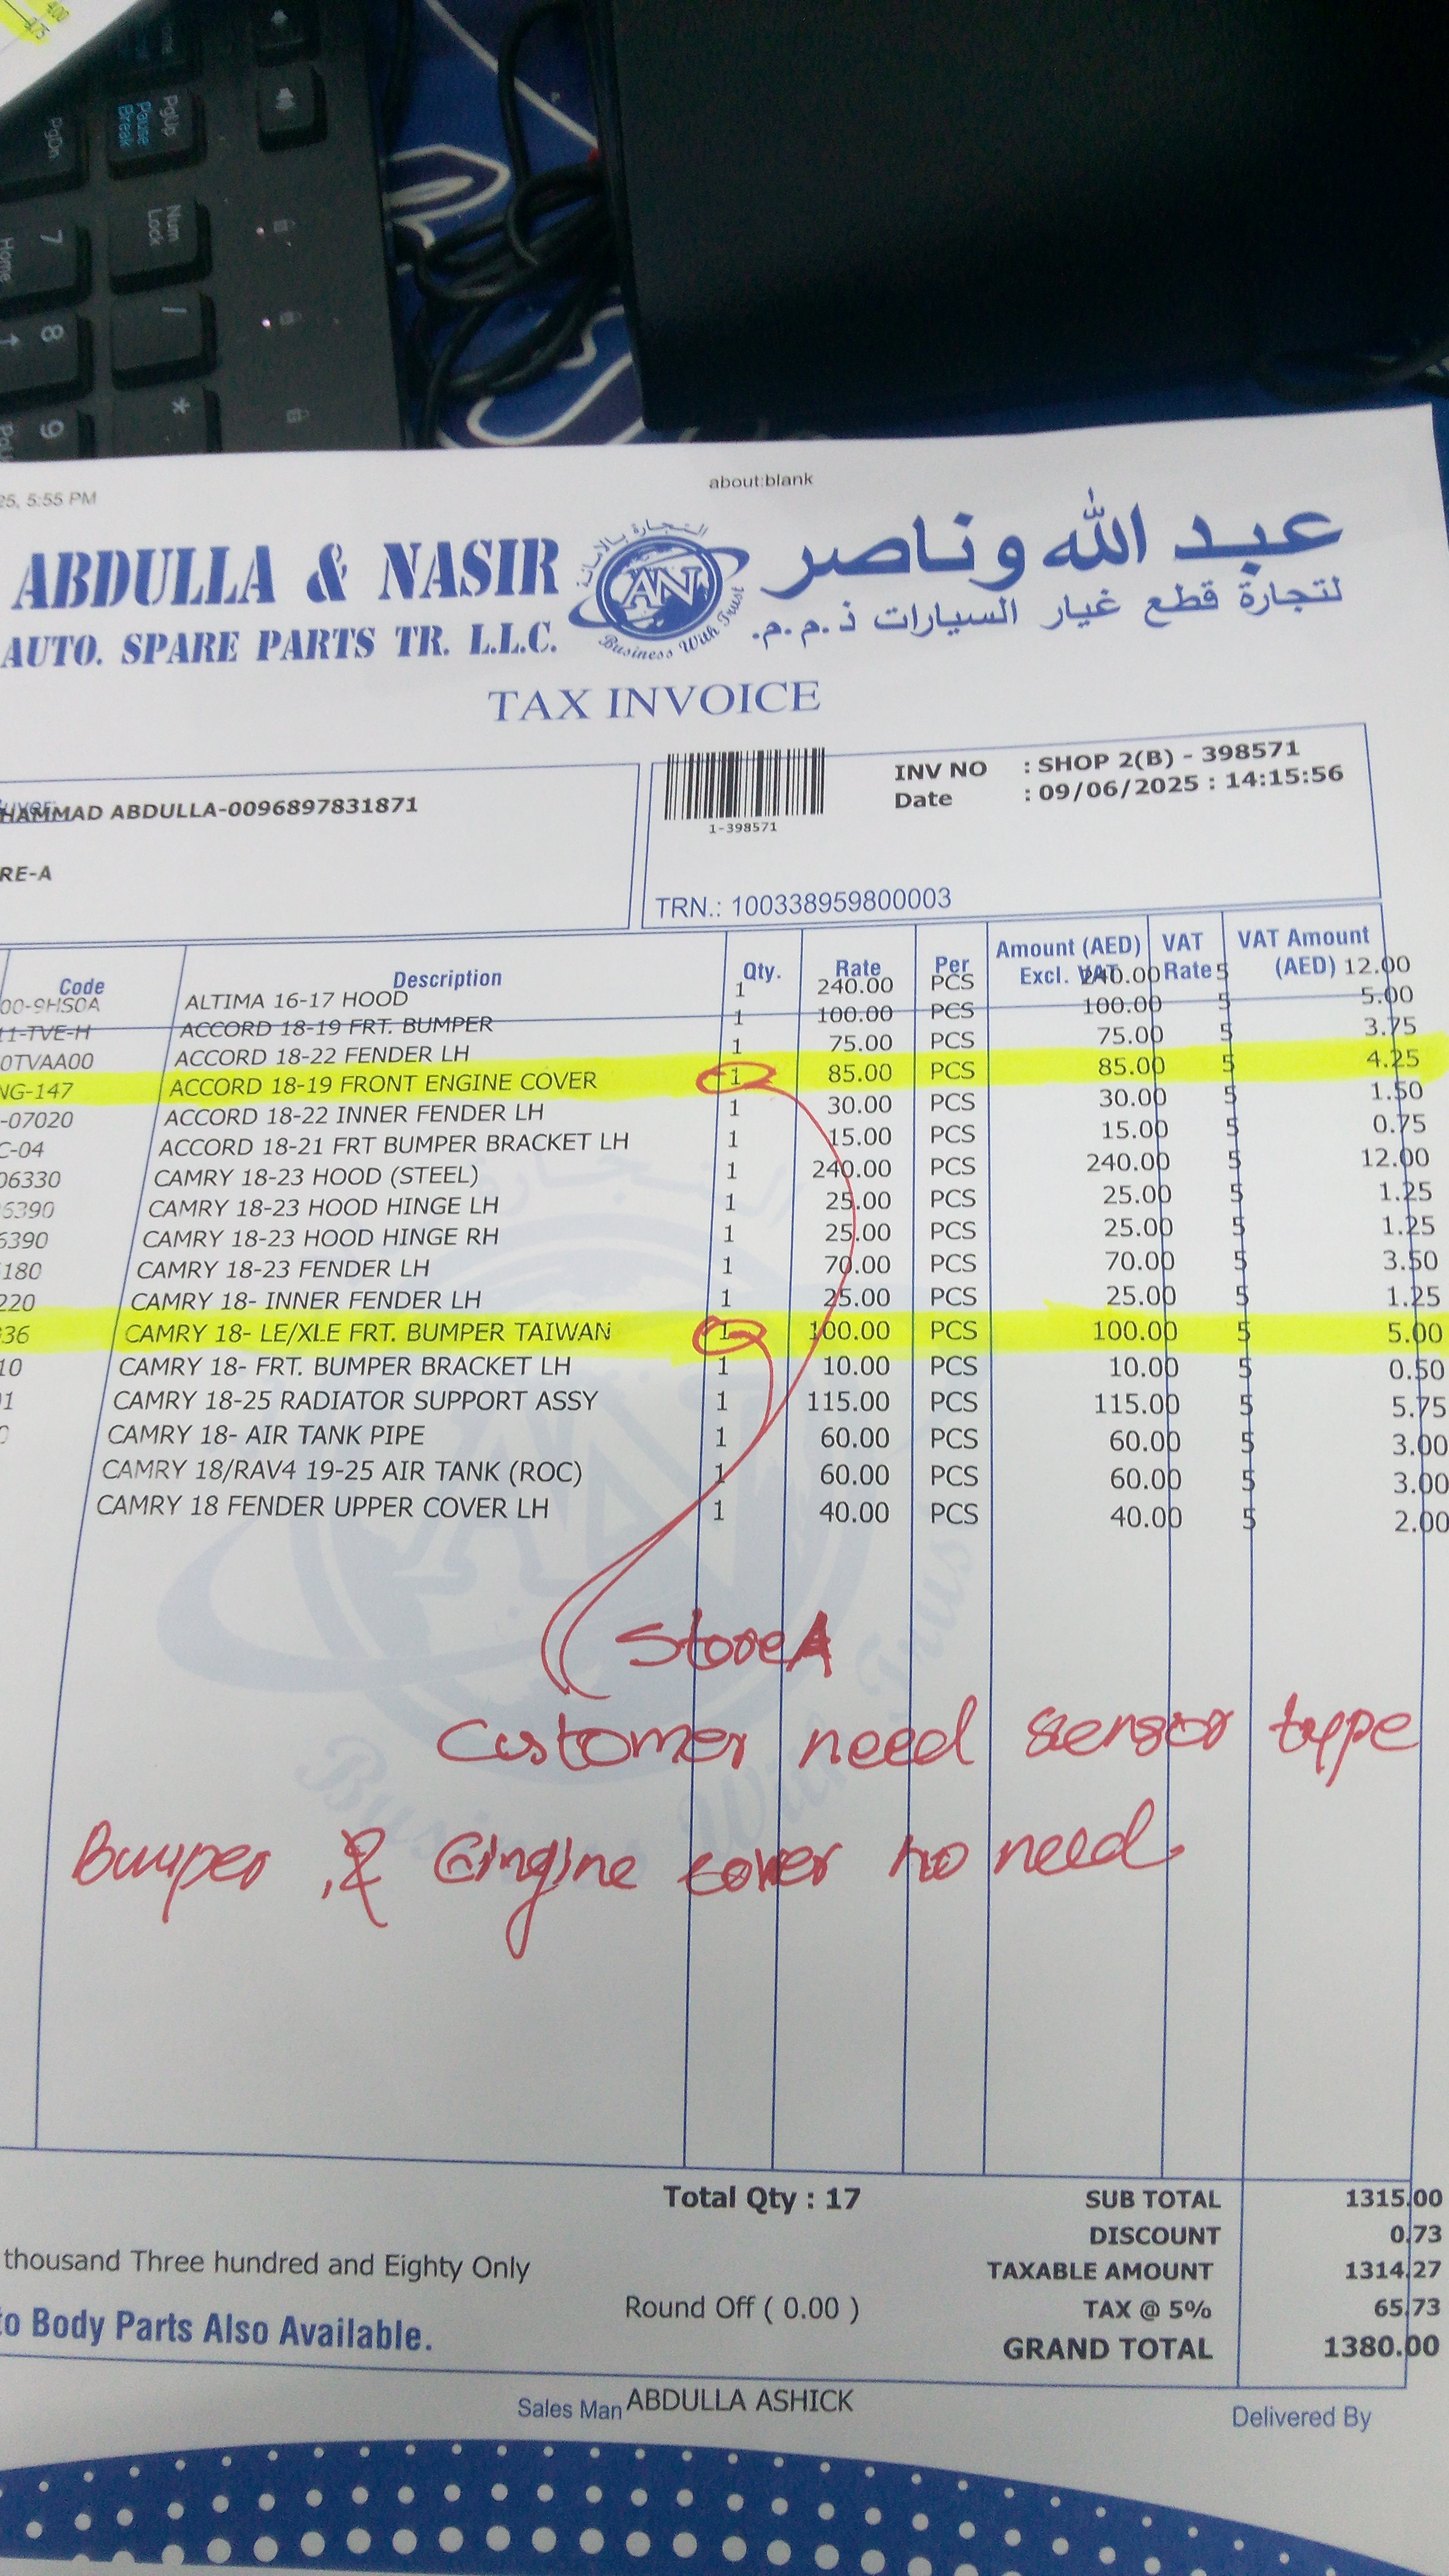 400
4.75
PgUp
Pause
Break
PgDn
Num
Lock
7
Home
/
8
*
9
25, 5:55 PM
about:blank
ABDULLA & NASIR
عبد الله وناصر
AUTO. SPARE PARTS TR. L.L.C.
لتجارة قطع غيار السيارات ذ.م.م.
التجارة بالامانة
AN
Business With Trust
TAX INVOICE
HAMMAD ABDULLA-0096897831871
RE-A
1-398571
INV NO : SHOP 2(B) - 398571
Date : 09/06/2025 : 14:15:56
TRN.: 100338959800003
Code Description Qty. Rate Per Amount (AED) Excl. VAT VAT Rate VAT Amount (AED)
00-9HS0A ALTIMA 16-17 HOOD 1 240.00 PCS 240.00 5 12.00
11-TVE-H ACCORD 18-19 FRT. BUMPER 1 100.00 PCS 100.00 5 5.00
0TVAA00 ACCORD 18-22 FENDER LH 1 75.00 PCS 75.00 5 3.75
NG-147 ACCORD 18-19 FRONT ENGINE COVER 1 85.00 PCS 85.00 5 4.25
-07020 ACCORD 18-22 INNER FENDER LH 1 30.00 PCS 30.00 5 1.50
C-04 ACCORD 18-21 FRT BUMPER BRACKET LH 1 15.00 PCS 15.00 5 0.75
06330 CAMRY 18-23 HOOD (STEEL) 1 240.00 PCS 240.00 5 12.00
6390 CAMRY 18-23 HOOD HINGE LH 1 25.00 PCS 25.00 5 1.25
6390 CAMRY 18-23 HOOD HINGE RH 1 25.00 PCS 25.00 5 1.25
180 CAMRY 18-23 FENDER LH 1 70.00 PCS 70.00 5 3.50
220 CAMRY 18- INNER FENDER LH 1 25.00 PCS 25.00 5 1.25
36 CAMRY 18- LE/XLE FRT. BUMPER TAIWAN 1 100.00 PCS 100.00 5 5.00
10 CAMRY 18- FRT. BUMPER BRACKET LH 1 10.00 PCS 10.00 5 0.50
1 CAMRY 18-25 RADIATOR SUPPORT ASSY 1 115.00 PCS 115.00 5 5.75
CAMRY 18- AIR TANK PIPE 1 60.00 PCS 60.00 5 3.00
CAMRY 18/RAV4 19-25 AIR TANK (ROC) 1 60.00 PCS 60.00 5 3.00
CAMRY 18 FENDER UPPER COVER LH 1 40.00 PCS 40.00 5 2.00
Store A
Customer need sensor type
Bumper , & Engine cover no need
Total Qty : 17
SUB TOTAL 1315.00
DISCOUNT 0.73
thousand Three hundred and Eighty Only
TAXABLE AMOUNT 1314.27
Round Off ( 0.00 )
TAX @ 5% 65.73
to Body Parts Also Available.
GRAND TOTAL 1380.00
Sales Man ABDULLA ASHICK
Delivered By